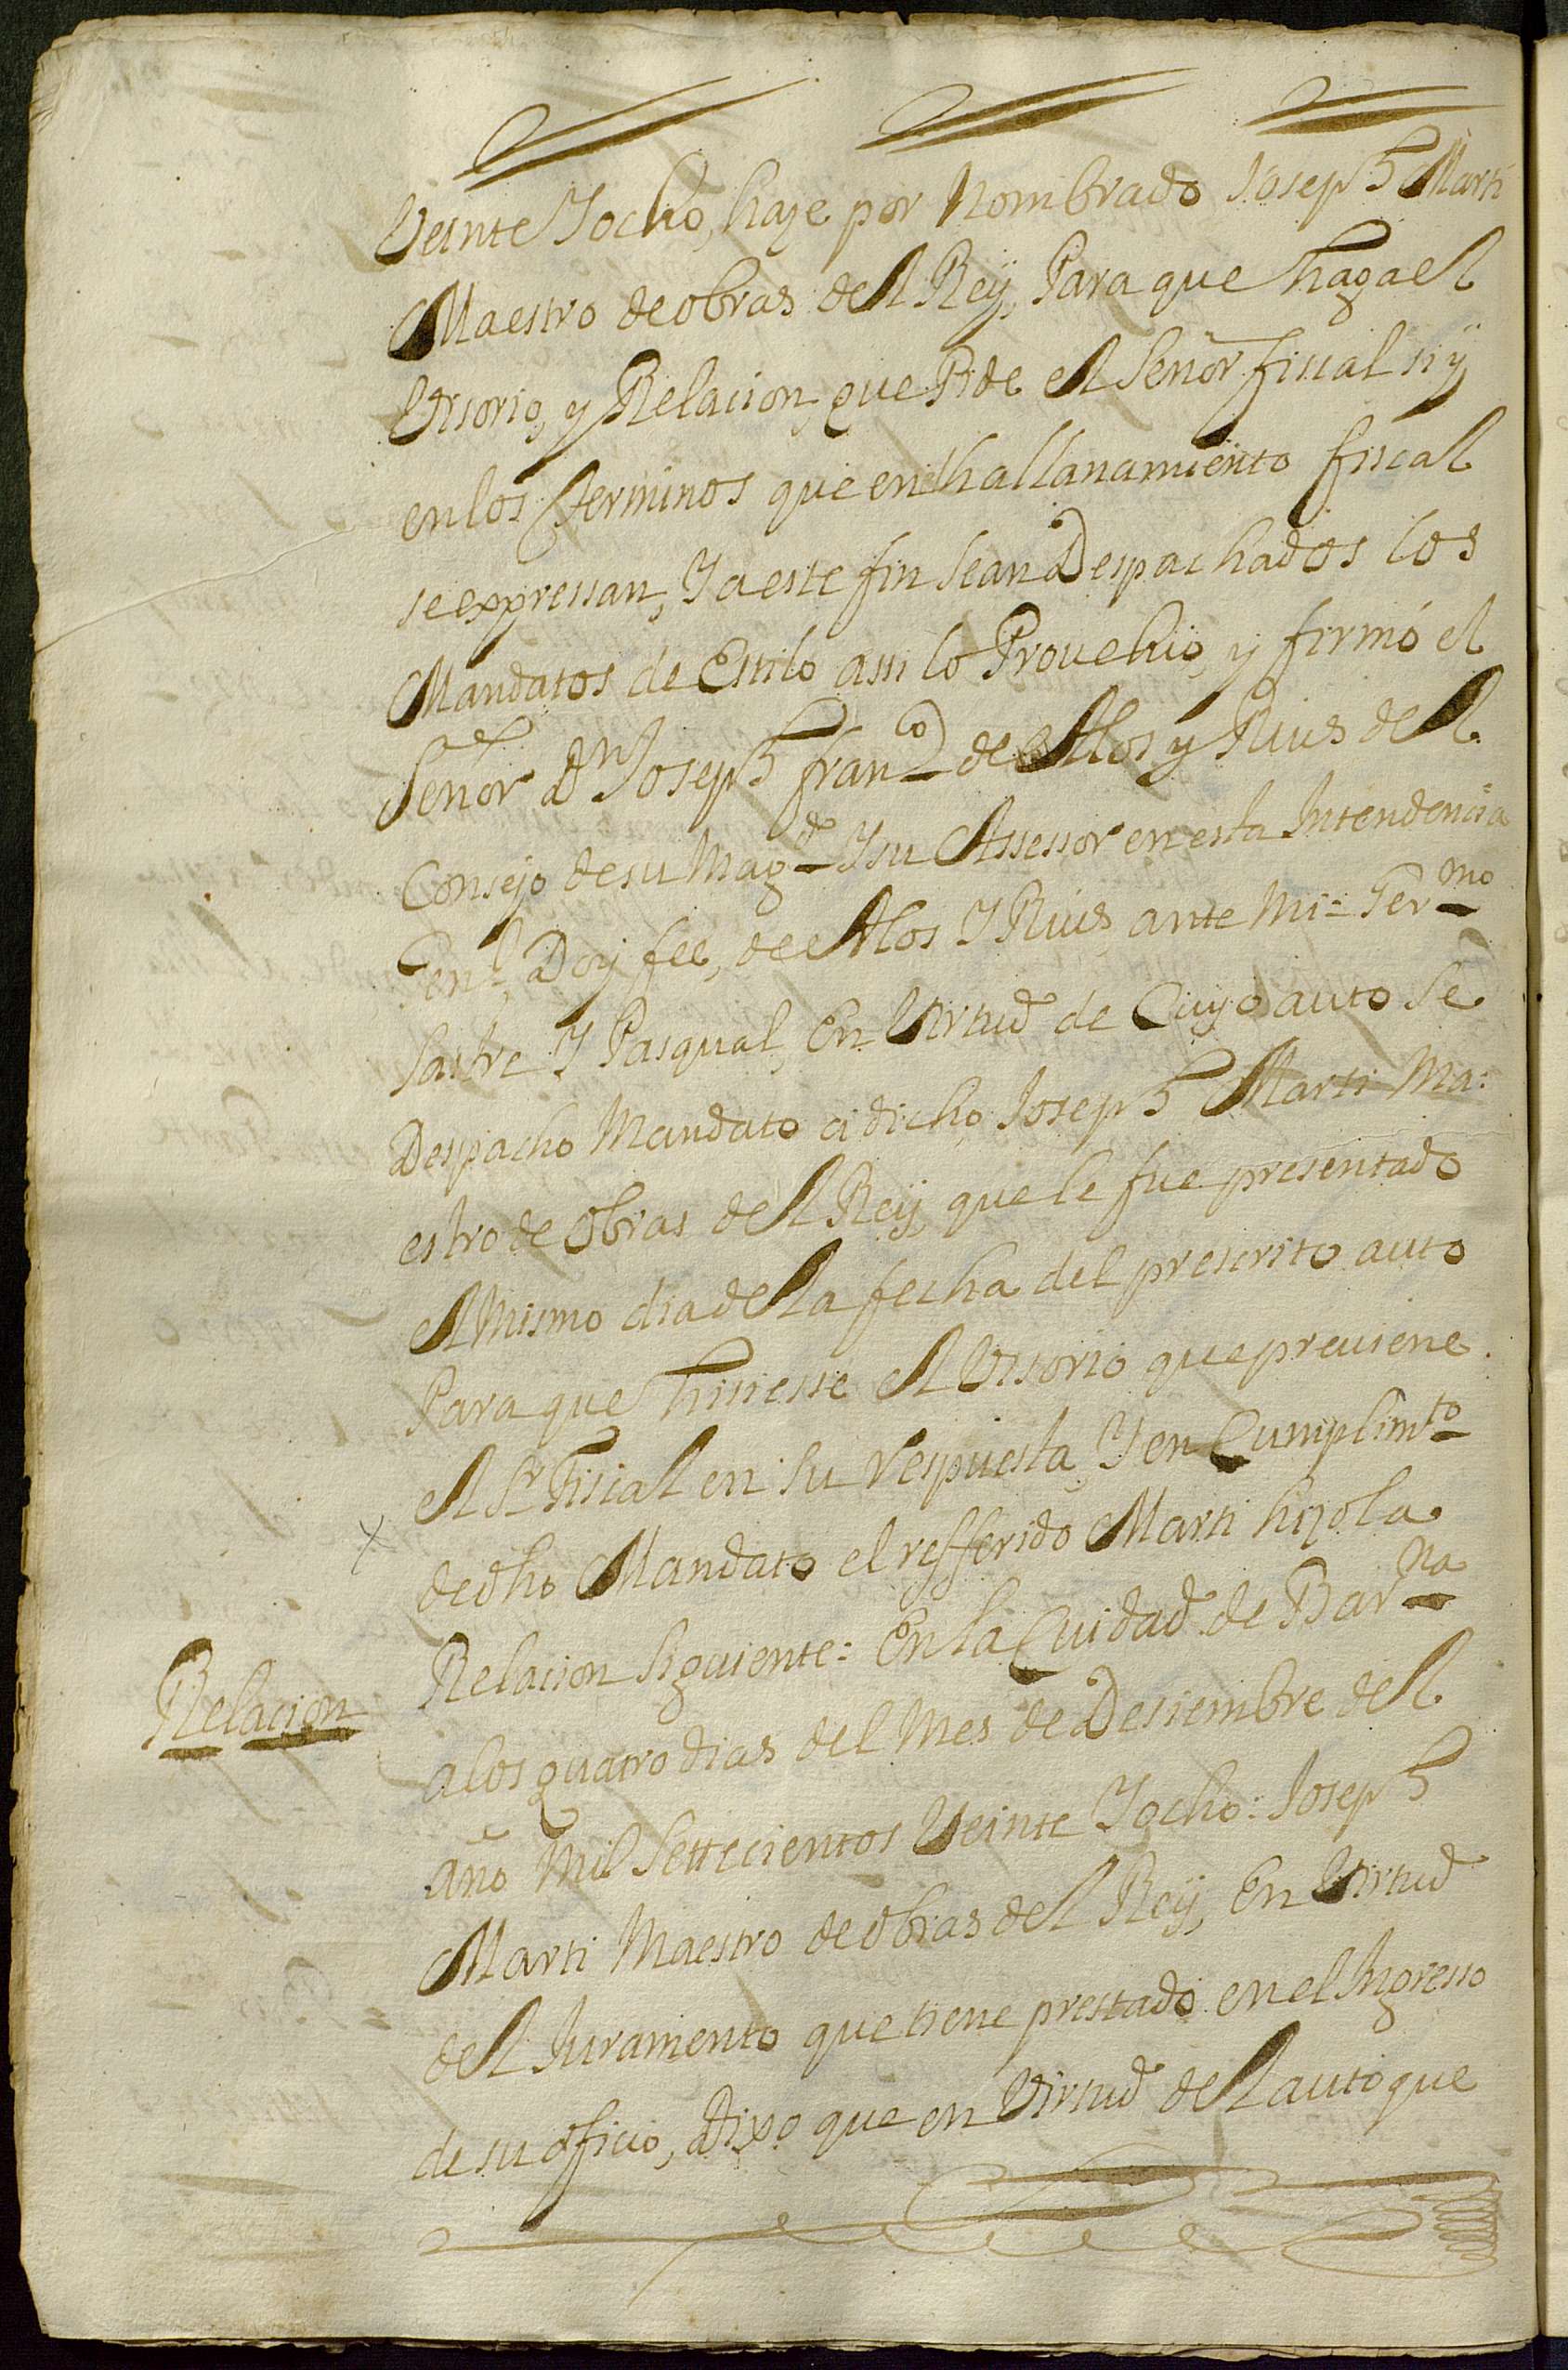 Veinte Y ocho, haze por Nombrado Joseph Marti
Maestro de obras del Rey, Para que haga el
Visorio, y Relacion, que Pide el Señor fiscal
en los terminos que en el hallanamiento fiscal
se expressan, Y a este fin sean Despachados los
Mandatos de Estilo assi lo Provehio, y firmó el
Señor Dn Joseph franco de Alos y Rius del
Consejo de su Magd Y su Assessor en esta Intendencia
Genl, Doy fee, de Alos Y Rius, ante Mi = Germo
Sastre Y Pasqual, En Virtud de Cuyo auto se
Despacho Mandato a dicho Joseph Marti Ma:
estro de obras del Rey, que le fue presentado
el Mismo dia de la fecha del prescrito auto
Para que hisiesse el Visorio que previene
el Sr Fiscal en su Respuesta, Y en Cumplimto
de dho Mandato el refferido Marti hizo la
Relacion Siguiente: En la Cuidad de Barna
Relacion
a los quatro dias del Mes de Desiembre del
año Mil Settecientos Veinte Y ocho: Joseph
Marti Maestro de obras del Rey, En Virtud
del Juramento que tiene prestado en el Ingresso
de su officio, Dixo que en Virtud del auto que